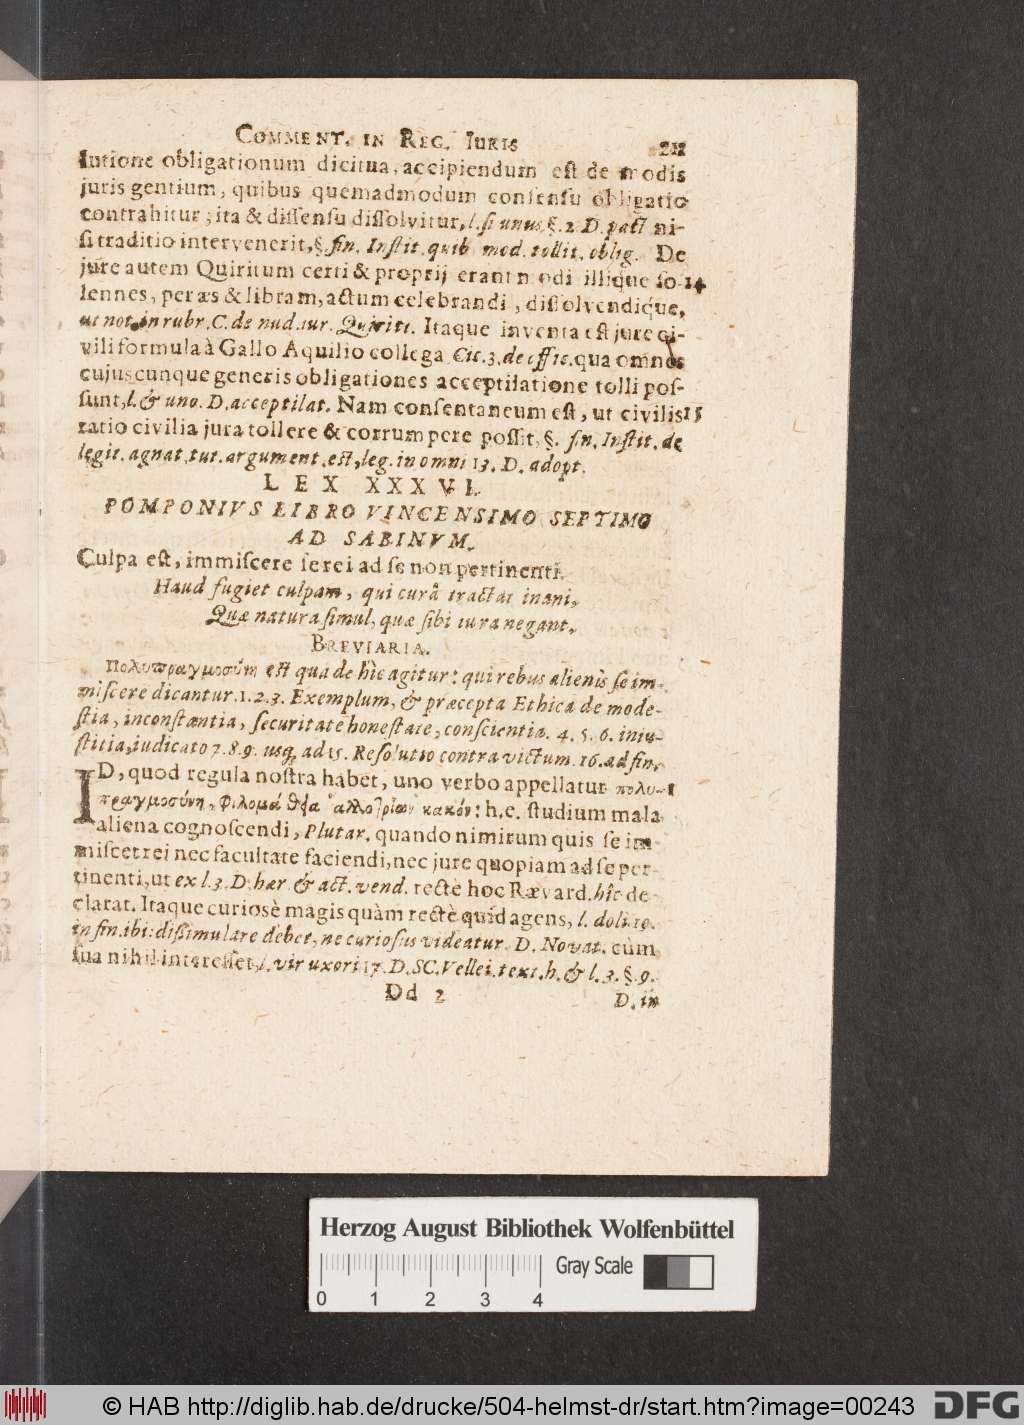 COMMENT. IN REG. IURIS 211
lutione obligationum dicitua, accipiendum est de modis
juris gentium, quibus quemadmodum consensu obligatio
contrahitur; ita & dissensu dissolvitur, l. si unus, §. 2. D. pact ni-
si traditio intervenerit, §. fin. Instit. quib mod. tollit. oblig. De
jure autem Quiritum certi & proprij erant modi illique so- 14
lennes, per æs & libram, actum celebrandi, dissolvendique,
ut not. in rubr. C. de nud. iur. Quiritt. Itaque inventa est jure ci-
vili formula à Gallo Aquilio collega Cic. 3. de offic. qua omnes
cujuscunque generis obligationes acceptilatione tolli pos-
sunt, l. & uno. D. acceptilat. Nam consentaneum est, ut civilis 15
ratio civilia jura tollere & corrumpere possit, §. fin. Instit. de
legit. agnat. tut. argument. est, leg. in omni 13. D. adopt.
LEX XXXVI.
POMPONIVS LIBRO VINCENSIMO SEPTIMO
AD SABINVM.
Culpa est, immiscere se rei ad se non pertinenti.
Haud fugiet culpam, qui curâ tractat inani,
Quæ natura simul, quæ sibi iura negant.
BREVIARIA.
Πολυπραγμοσύνη est qua de hîc agitur: qui rebus alienis se im-
miscere dicantur. 1. 2. 3. Exemplum, & præcepta Ethica de mode-
stia, inconstantia, securitate honestate, conscientia. 4. 5. 6. iniu-
stitia, iudicato 7. 8. 9. usq; ad 15. Resolutio contra victum. 16. ad fin.
ID, quod regula nostra habet, uno verbo appellatur πολυ- 1
πραγμοσύνη, Φιλομάθεια ἀλλοτρίων κακῶν: h. e. studium mala
aliena cognoscendi, Plutar. quando nimirum quis se im-
miscet rei nec facultate faciendi, nec jure quopiam ad se per-
tinenti, ut ex l. 3. D. hær. & act. vend. rectè hoc Rævard. hîc de-
clarat. Itaque curiosè magis quàm rectè quid agens, l. doli 10.
in fin. ibi: dissimulare debet, ne curiosus videatur. D. Novat. cùm
sua nihil interesset, l. vir uxori 17. D. SC. Vellei. text. h. & l. 3. §. 9.
Dd 2 D. in
Herzog August Bibliothek Wolfenbüttel
Gray Scale
0 1 2 3 4
© HAB http://diglib.hab.de/drucke/504-helmst-dr/start.htm?image=00243 DFG